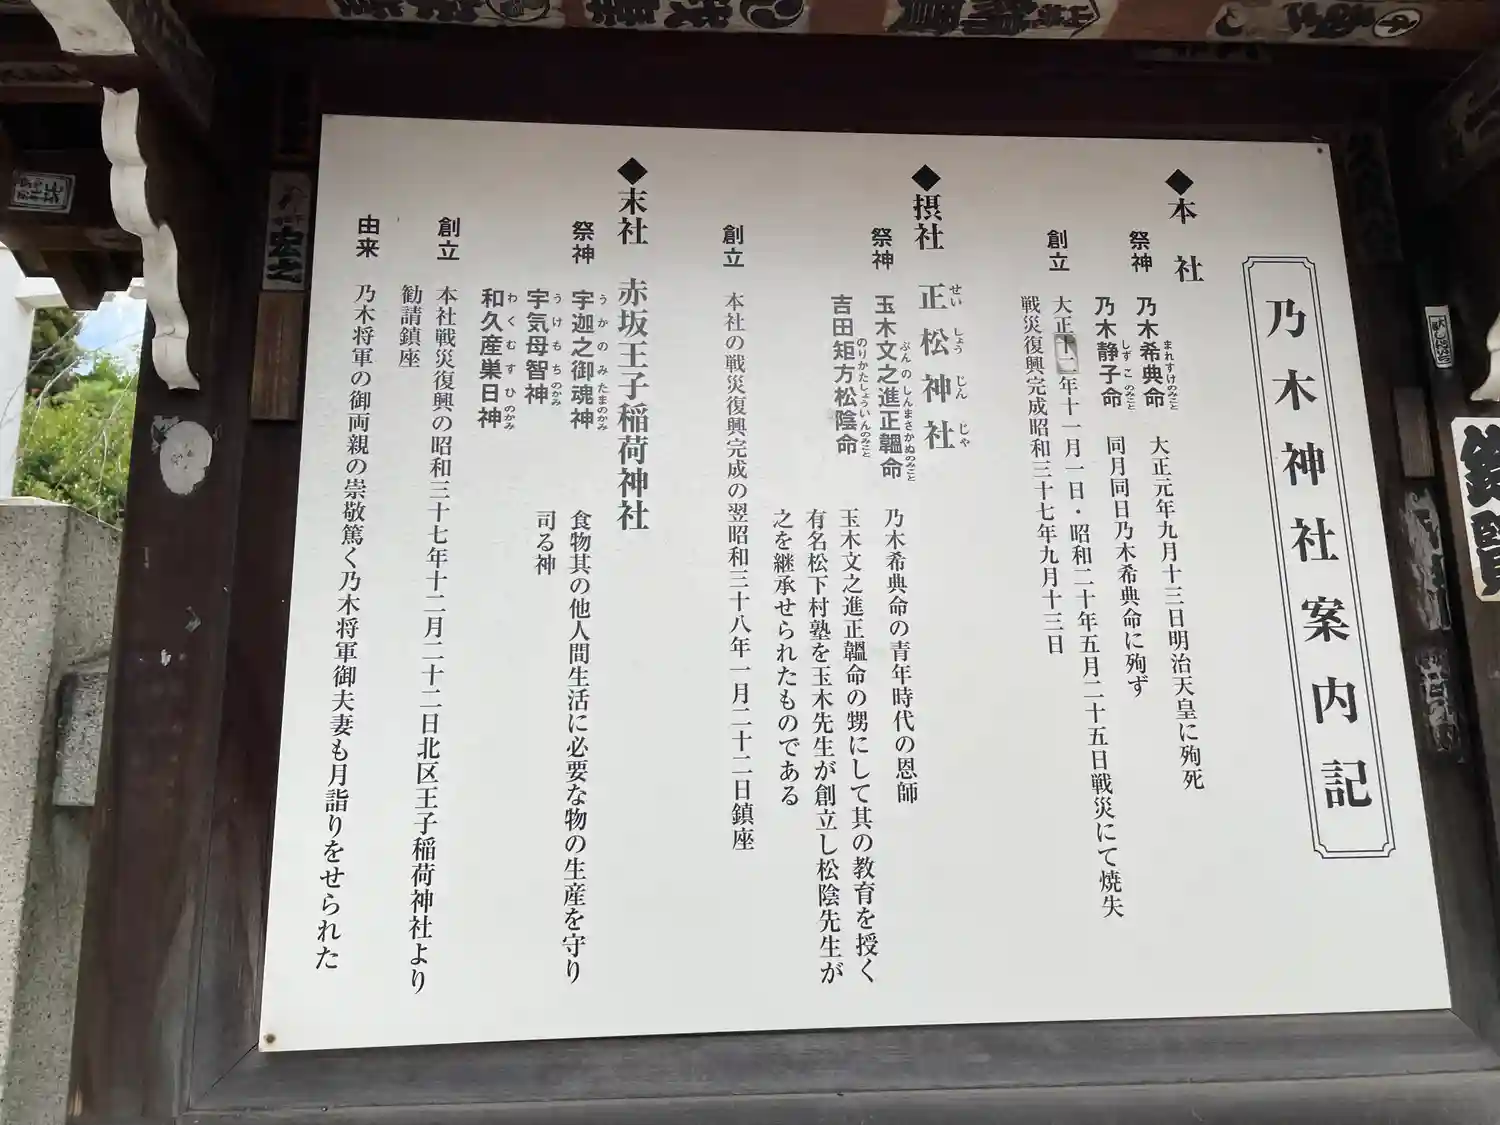 乃木神社案内記
◆本社
祭神
乃木希典命 大正元年九月十三日明治天皇に殉死
まれすけのみこと
乃木静子命 同月同日乃木希典命に殉ず
しずこのみこと
創立
大正十二年十一月一日・昭和二十年五月二十五日戦災にて焼失
戦災復興完成昭和三十七年九月十三日
◆摂社 正松神社
せいしょうじんじゃ
祭神
玉木文之進正韞命 乃木希典命の青年時代の恩師
ぶんのしんまさかぬのみこと
玉木文之進正韞命の甥にして其の教育を授く
吉田矩方松陰命 有名松下村塾を玉木先生が創立し松陰先生が
のりかたしょういんのみこと
之を継承せられたものである
創立
本社の戦災復興完成の翌昭和三十八年一月二十二日鎮座
◆末社 赤坂王子稲荷神社
祭神
宇迦之御魂神 食物其の他人間生活に必要な物の生産を守り
うかのみたまのかみ
司る神
宇気母智神
うけもちのかみ
和久産巣日神
わくむすひのかみ
創立
本社戦災復興の昭和三十七年十二月二十二日北区王子稲荷神社より
勧請鎮座
由来
乃木将軍の御両親の崇敬篤く乃木将軍御夫妻も月詣りをせられた
宏之